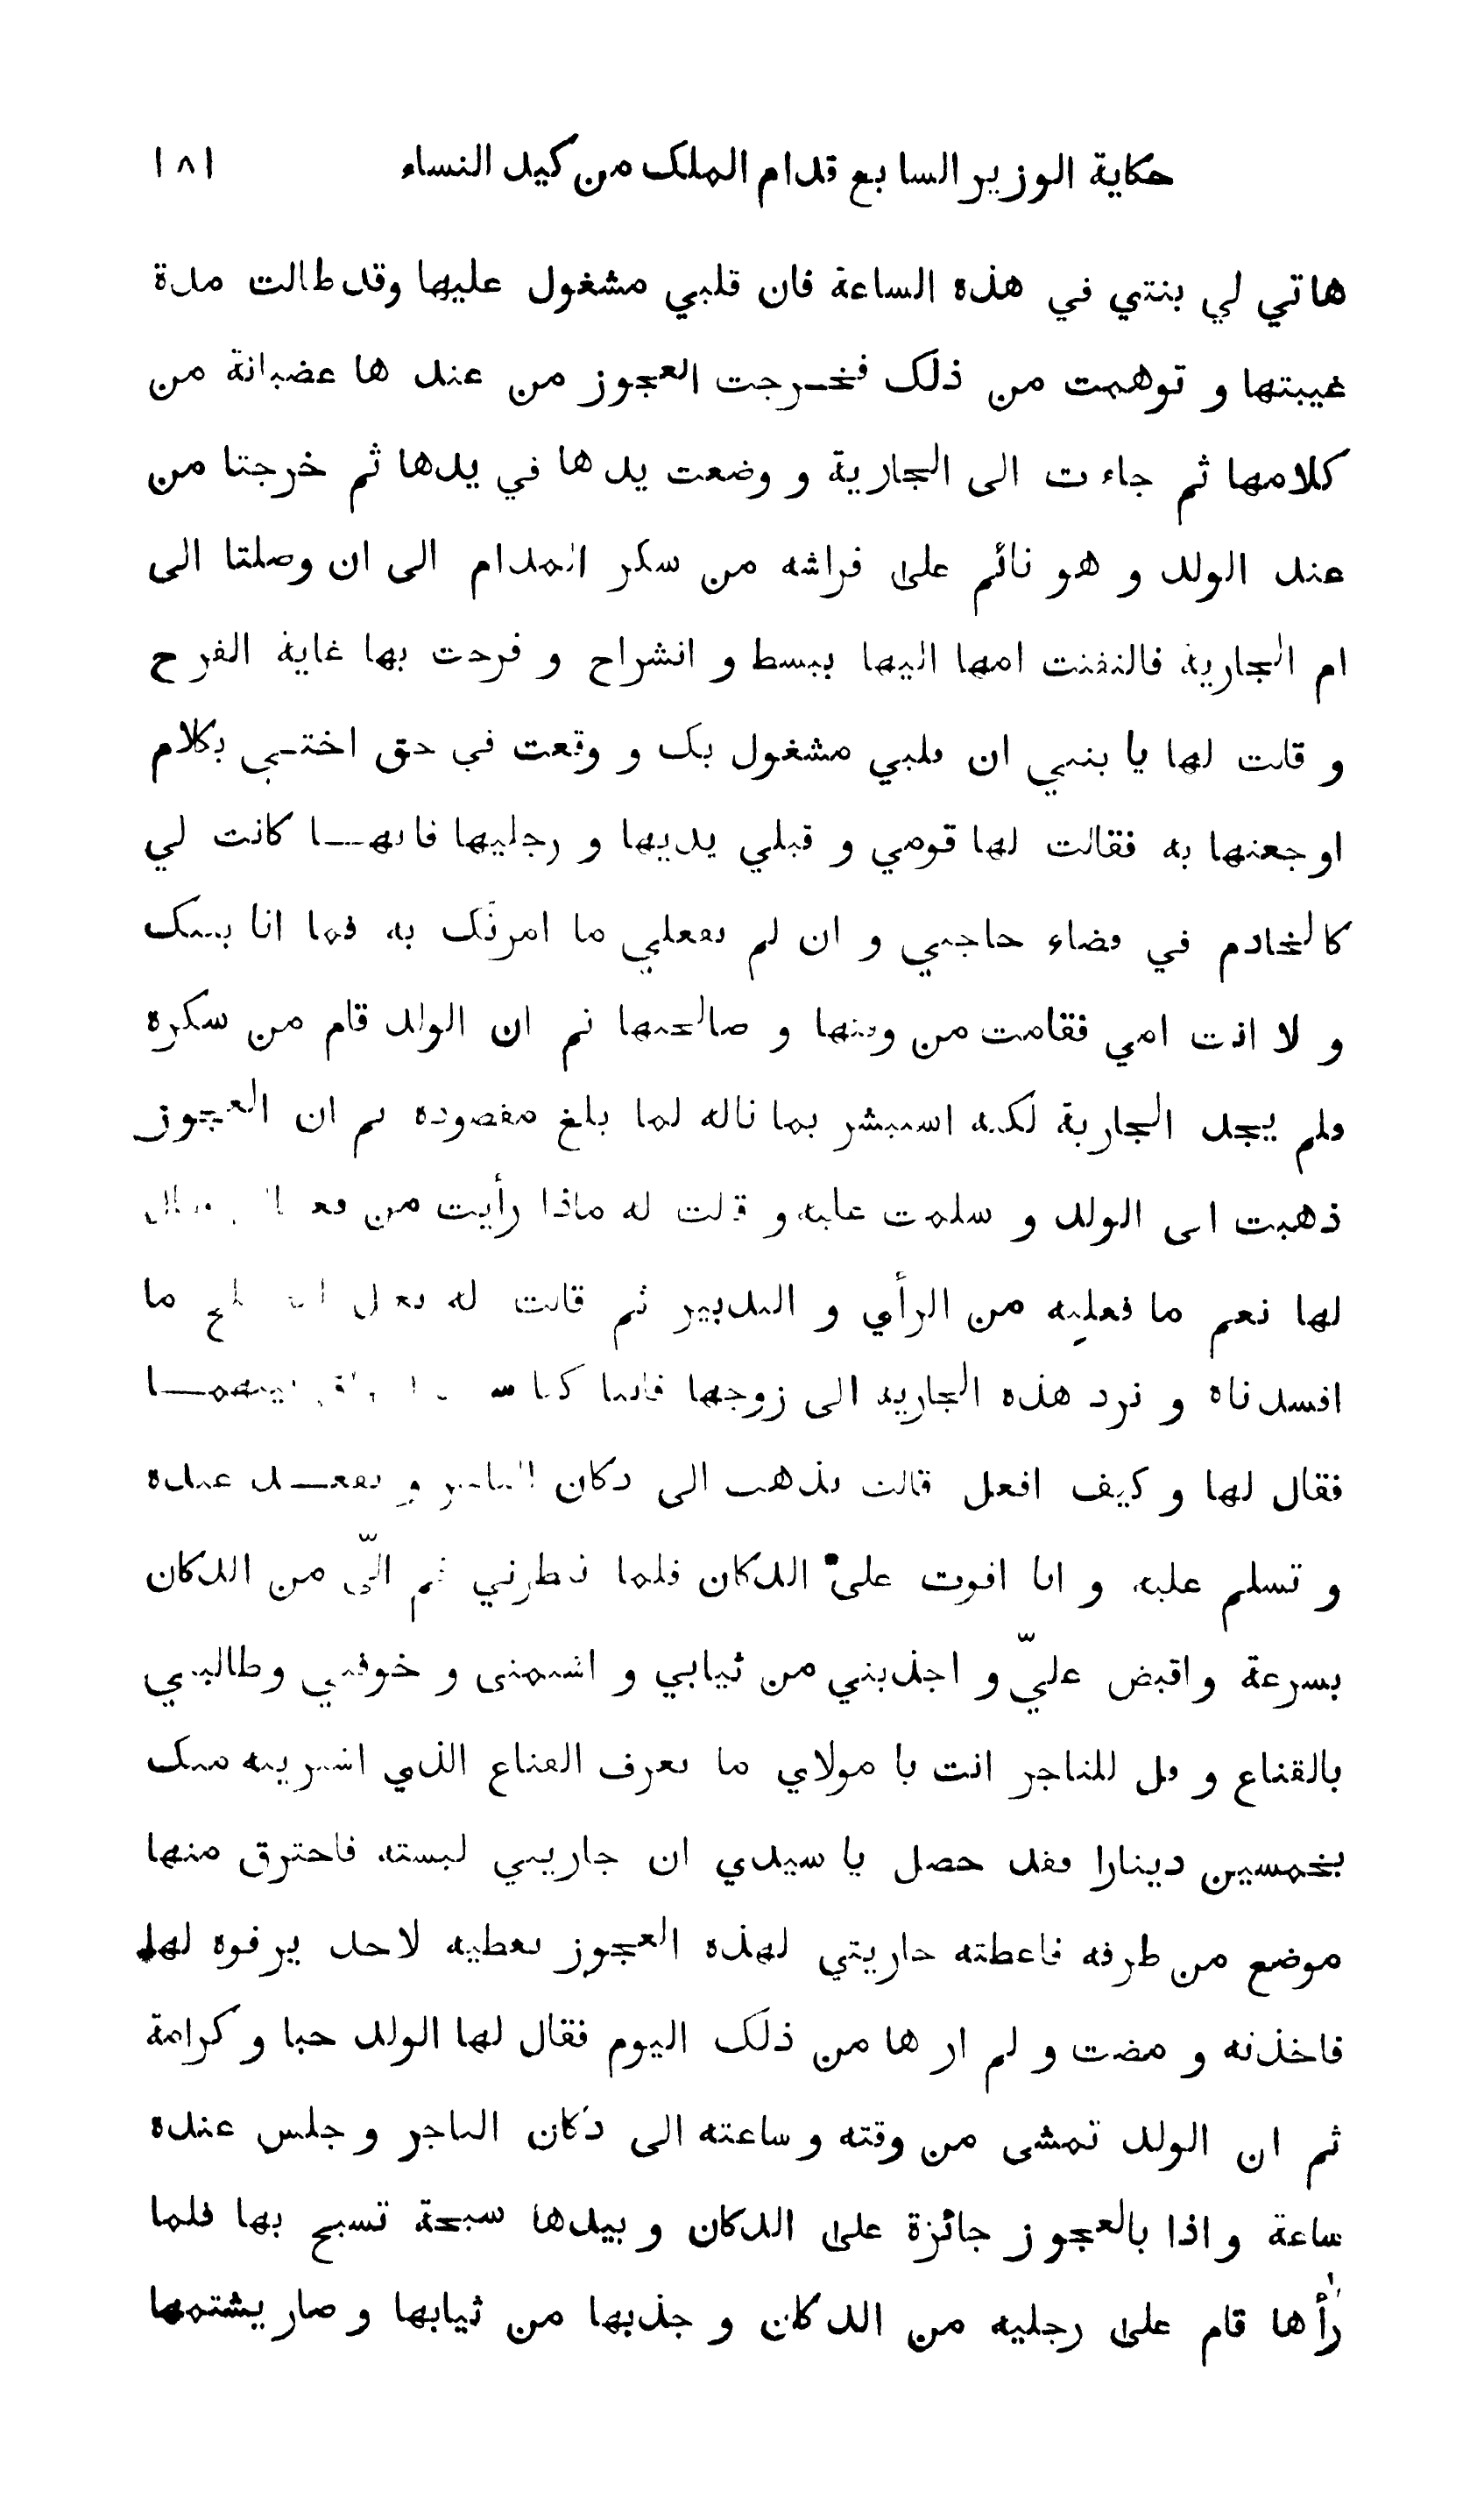 حكاية الوزير السابع قدام الملك من كيد النساء ١٨١
هاتي لي بنتي في هذه الساعة فان قلبي مشغول عليها وقد طالت مدة
غيبتها و توهمت من ذلك فخرجت العجوز من عند ها غضبانة من
كلامها ثم جاءت الى الجارية و وضعت يد ها في يدها ثم خرجتا من
عند الولد و هو نائم على فراشه من سكر المدام الى ان وصلتا الى
ام الجارية فالتفتت امها اليها ببسط و انشراح و فرحت بها غاية الفرح
و قالت لها يا بنتي ان قلبي مشغول بك و وقعت في حق اختي بكلام
اوجعتها به فقالت لها قومي و قبلي يديها و رجليها فانها كانت لي
كالخادم في قضاء حاجتي و ان لم تفعلي ما امرتك به فما انا بنتك
و لا انت امي فقامت من وقتها و صالحتها ثم ان الولد قام من سكره
فلم يجد الجارية لكنه استبشر بما ناله لما بلغ مقصوده ثم ان العجوز
ذهبت الى الولد و سلمت عليه و قالت له ماذا رأيت من
لها نعم ما فعلتيه من الرأي و التدبير ثم قالت له ما
افسدناه و نرد هذه الجارية الى زوجها فاننا كنا بينهما
فقال لها و كيف افعل قالت تذهب الى دكان التاجر و تقعد عنده
و تسلم عليه و انا افوت على الدكان فلما تنظرني قم اليّ من الدكان
بسرعة واقبض عليّ و اجذبني من ثيابي و اشتمنى و خوفني وطالبني
بالقناع و قل للتاجر انت يا مولاي ما تعرف القناع الذي اشتريته منك
بخمسين دينارا فقد حصل يا سيدي ان جاريتي لبسته فاحترق منها
موضع من طرفه فاعطته جاريتي لهذه العجوز تعطيه لاحد يرفوه لها
فاخذته و مضت و لم ار ها من ذلك اليوم فقال لها الولد حبا و كرامة
ثم ان الولد تمشى من وقته و ساعته الى دكان التاجر و جلس عنده
ساعة و اذا بالعجوز جائزة على الدكان و بيدها سبحة تسبح بها فلما
رأها قام على رجليه من الدكان و جذبها من ثيابها و صار يشتمها